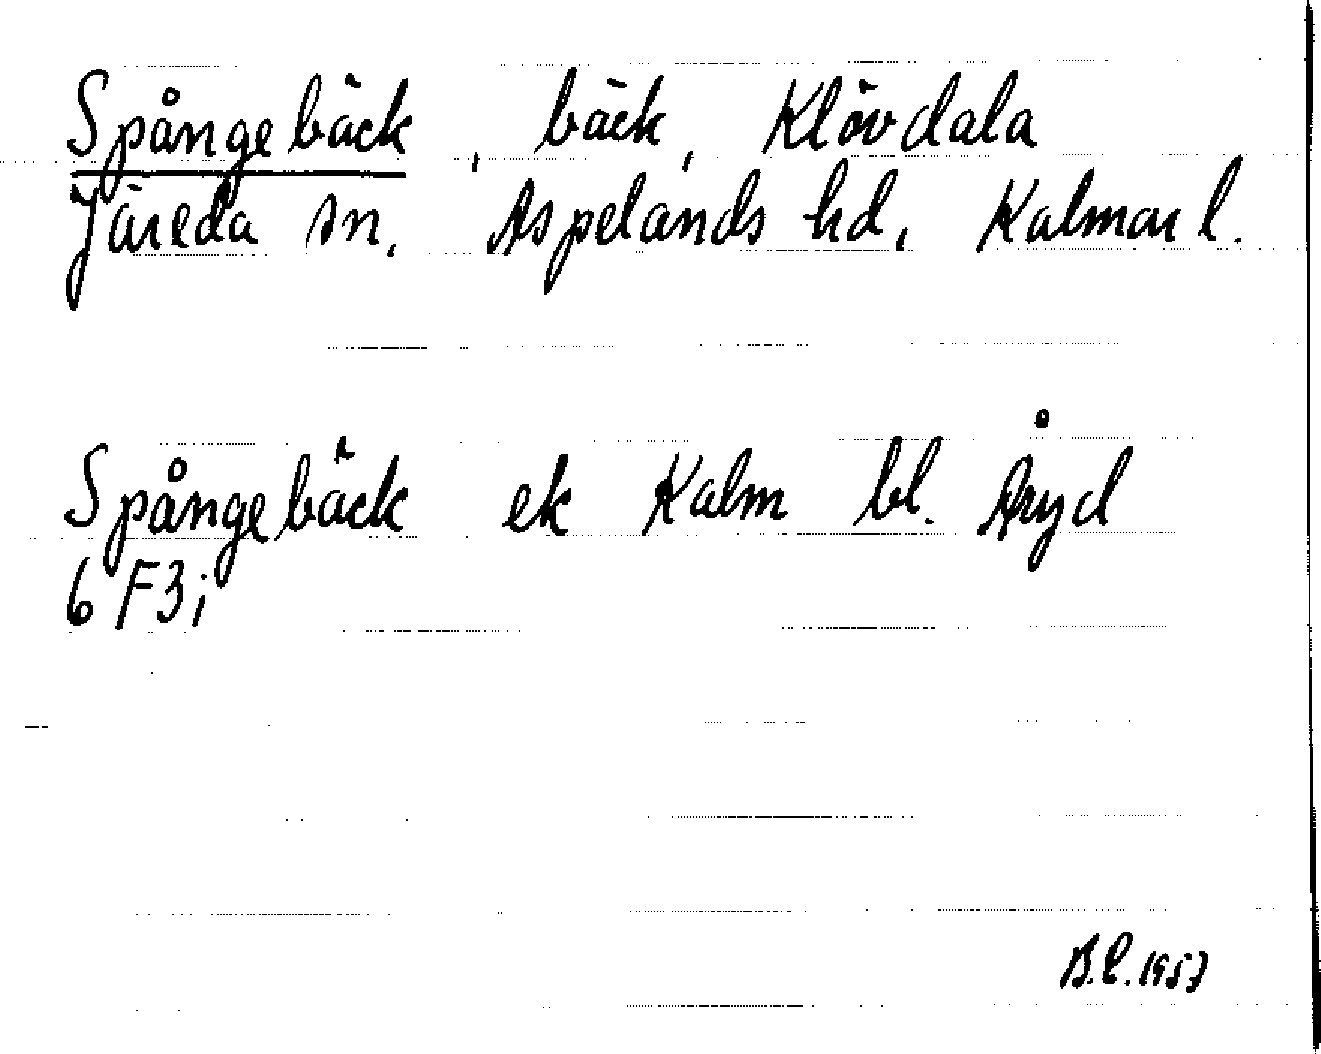 Spångebäck, bäck, Klövdala
Järeda sn, Aspelands hd, Kalmar l.
Spångebäck ek Kalm bl. Åryd
6 F3i
B.E. 1957